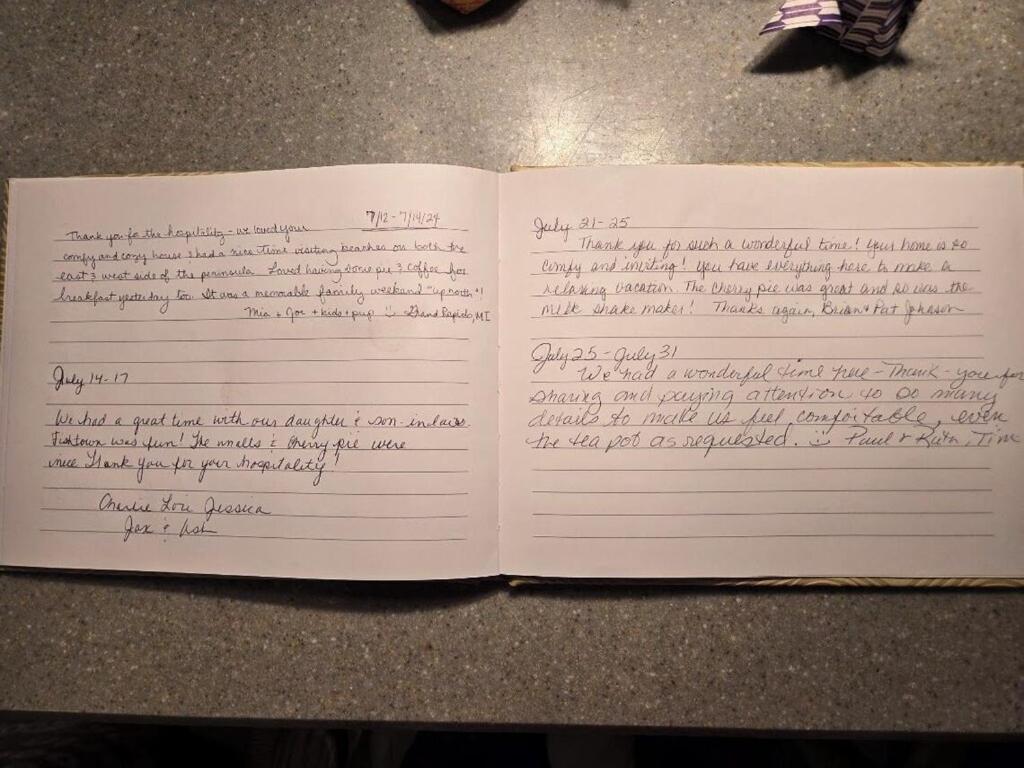 7/12 - 7/14/24
Thank you for the hospitality - we loved your
comfy and cozy house & had a nice time visiting beaches on both the
east & west side of the peninsula. Loved having some pie & coffee for
breakfast yesterday too. It was a memorable family weekend "up north"!
Mia + Joe + kids + pup :) Grand Rapids, MI
July 14-17
We had a great time with our daughter & son-in-laws
Fishtown was fun! The smells & cherry pie were
nice Thank you for your hospitality!
Charlie Lori Jessica
Jax & Ash
July 21-25
Thank you for such a wonderful time! Your home is so
comfy and inviting! You have everything here to make a
relaxing vacation. The cherry pie was great and so was the
milk shake maker! Thanks again, Brian & Pat Johnson
July 25 - July 31
We had a wonderful time here - Thank - you for
sharing and paying attention to so many
details to make us feel comfortable, even
the tea pot as requested. :) Paul & Ruth, Tim